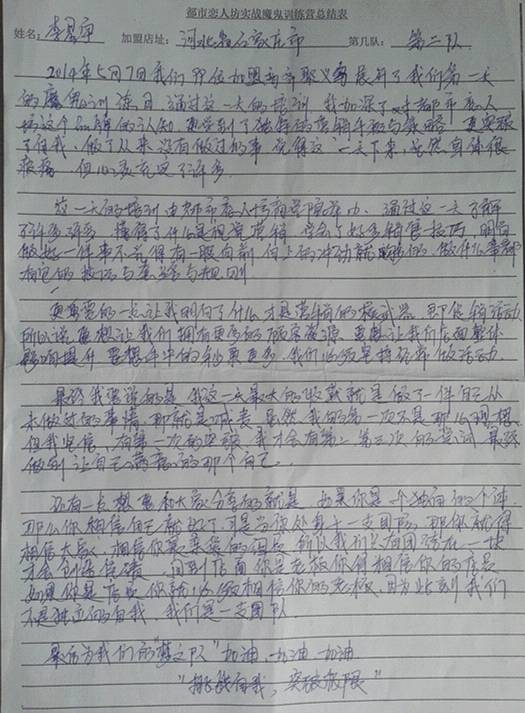 都市恋人坊实战魔鬼训练营总结表
姓名: 李星宇 加盟店址: 河北省石家庄市 第几队: 第二队
2014年5月7日我们 位加盟商齐聚义乌展开了我们第一天
的魔鬼训练日，通过这一天的培训，我加深了对都市恋人
坊这个品牌的认知，更学到了独特的营销手段与策略，更突破
了自我，做了从来没有做过的事，觉得这一天下来，虽然身体很
疲惫，但心灵充实了许多。
这一天的培训由都市恋人坊商学院举办，通过这一天了解
了许多许多，懂得了什么是 营销，学会了好多销售技巧，明白
做好一件事不光得有一股向前向上的冲动就 的，做什么事都
有它的技巧与 与规则
更重要的一点让我明白了什么才是营销的 武器，那促销活动
所以说要想让我们拥有更多的顾客资源，要想让我们店面整体
影响提升，要想手中的钞票更多，我们必须坚持经常做活动。
最后我要说的是，我这一天最大的收获就是做了一件自己从
未做过的事情，那就是喊卖，虽然我的第一次不是那么理想，
但我坚信，有第一次的突破，我才会有第二第三次的尝试，最终
做到让自己满意的那个自己。
还有一点想要和大家分享的就是，如果你是一个独立的个体，
那么你相信自己就好了，可是当你处身于一支团队，那你就得
相信大家，相信你最亲爱的组员，所以我们 团结在一块
才会创造佳绩，回到店面你是老板你得相信你的店员，
如果你是店员你就必须相信你的老板，因为此刻我们
不是独立的自我，我们是一支团队
最后为我们的“梦之队”加油，加油，加油
“挑战自我，突破极限”